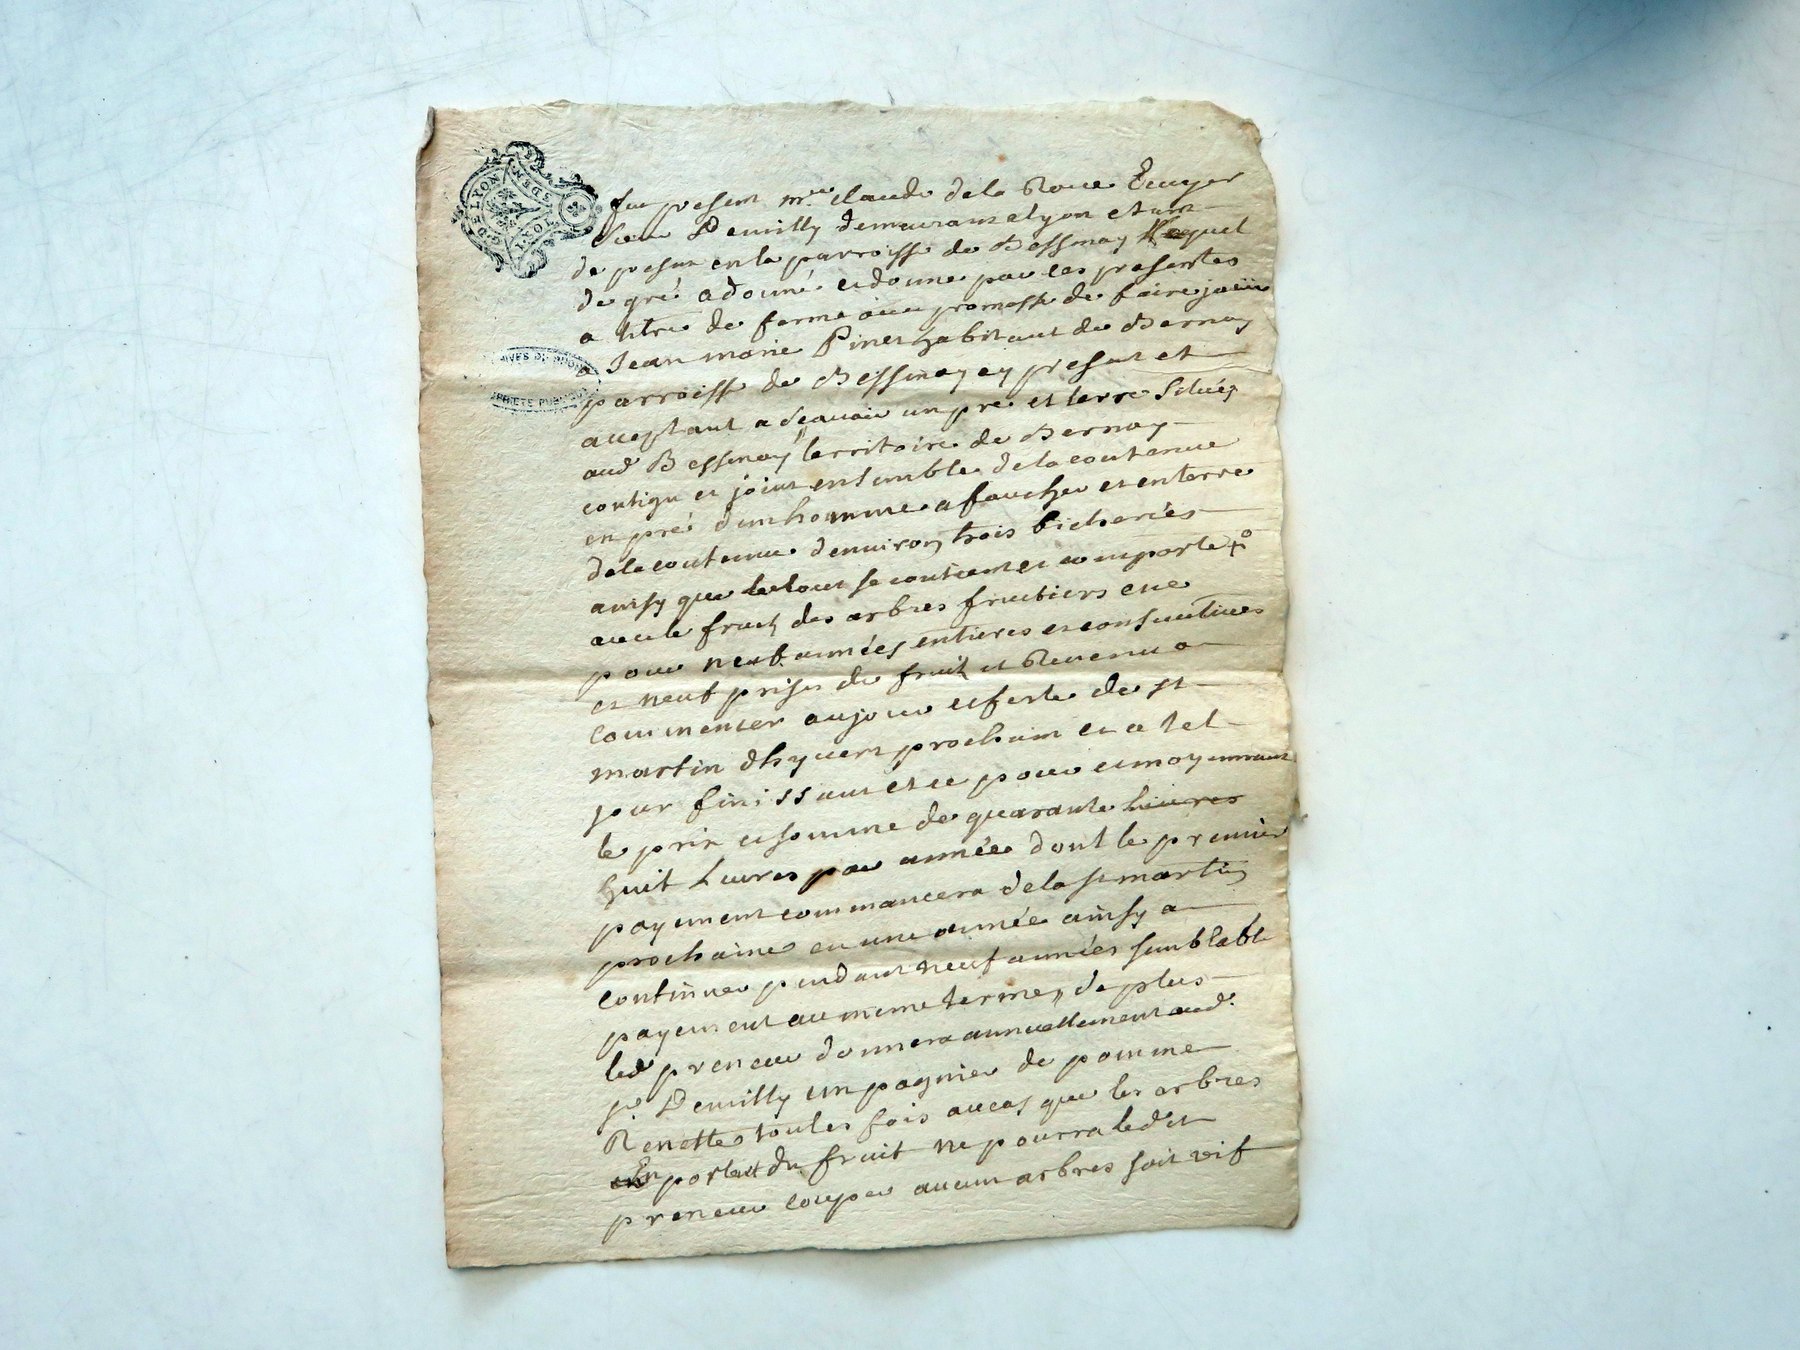 G. DE LYON
2 DEN.
LYON
fut present mre claude de la Roue Ecuyer
sieur Demilly demeurant a lyon etant
de present en la parroisse de Bessenay lequel
de gré a donné et donne par ces presentes
a titre de ferme avec promesse de faire jouir
a Jean marie Pinet habitant de Bernay
parroisse de Bessenay cy present et
acceptant a sçavoir un pre et terre situés
aud Bessenay territoire de Bernay
contigu et joint ensemble de la contenue
en pré d'un homme a faucher et en terre
de la contenue d'environ trois bicherées
ainsy que le tout se contient et comporte
avec le fruit des arbres fruitiers et ce
pour neuf années entieres et consecutives
et neuf prises de fruit et Revenu a
commencer au jour et feste de st
martin d'hyvert prochain et a tel
jour finissant et ce pour et moyennant
le prix et somme de quarante livres
huit Livres par année dont le premier
payement commancera de la st martin
prochaine en une année ainsy a
continuer pendant neuf années semblable
payement au meme terme, de plus
led preneur donnera annuellement aud.
sr Demilly un pagnier de pomme
Renette toutes fois au cas que les arbres
En portent du fruit ne pourra ledit
preneur couper aucun arbres soit vif
ARCHIVES DU RHONE
PROPRIETE PUBLIQUE